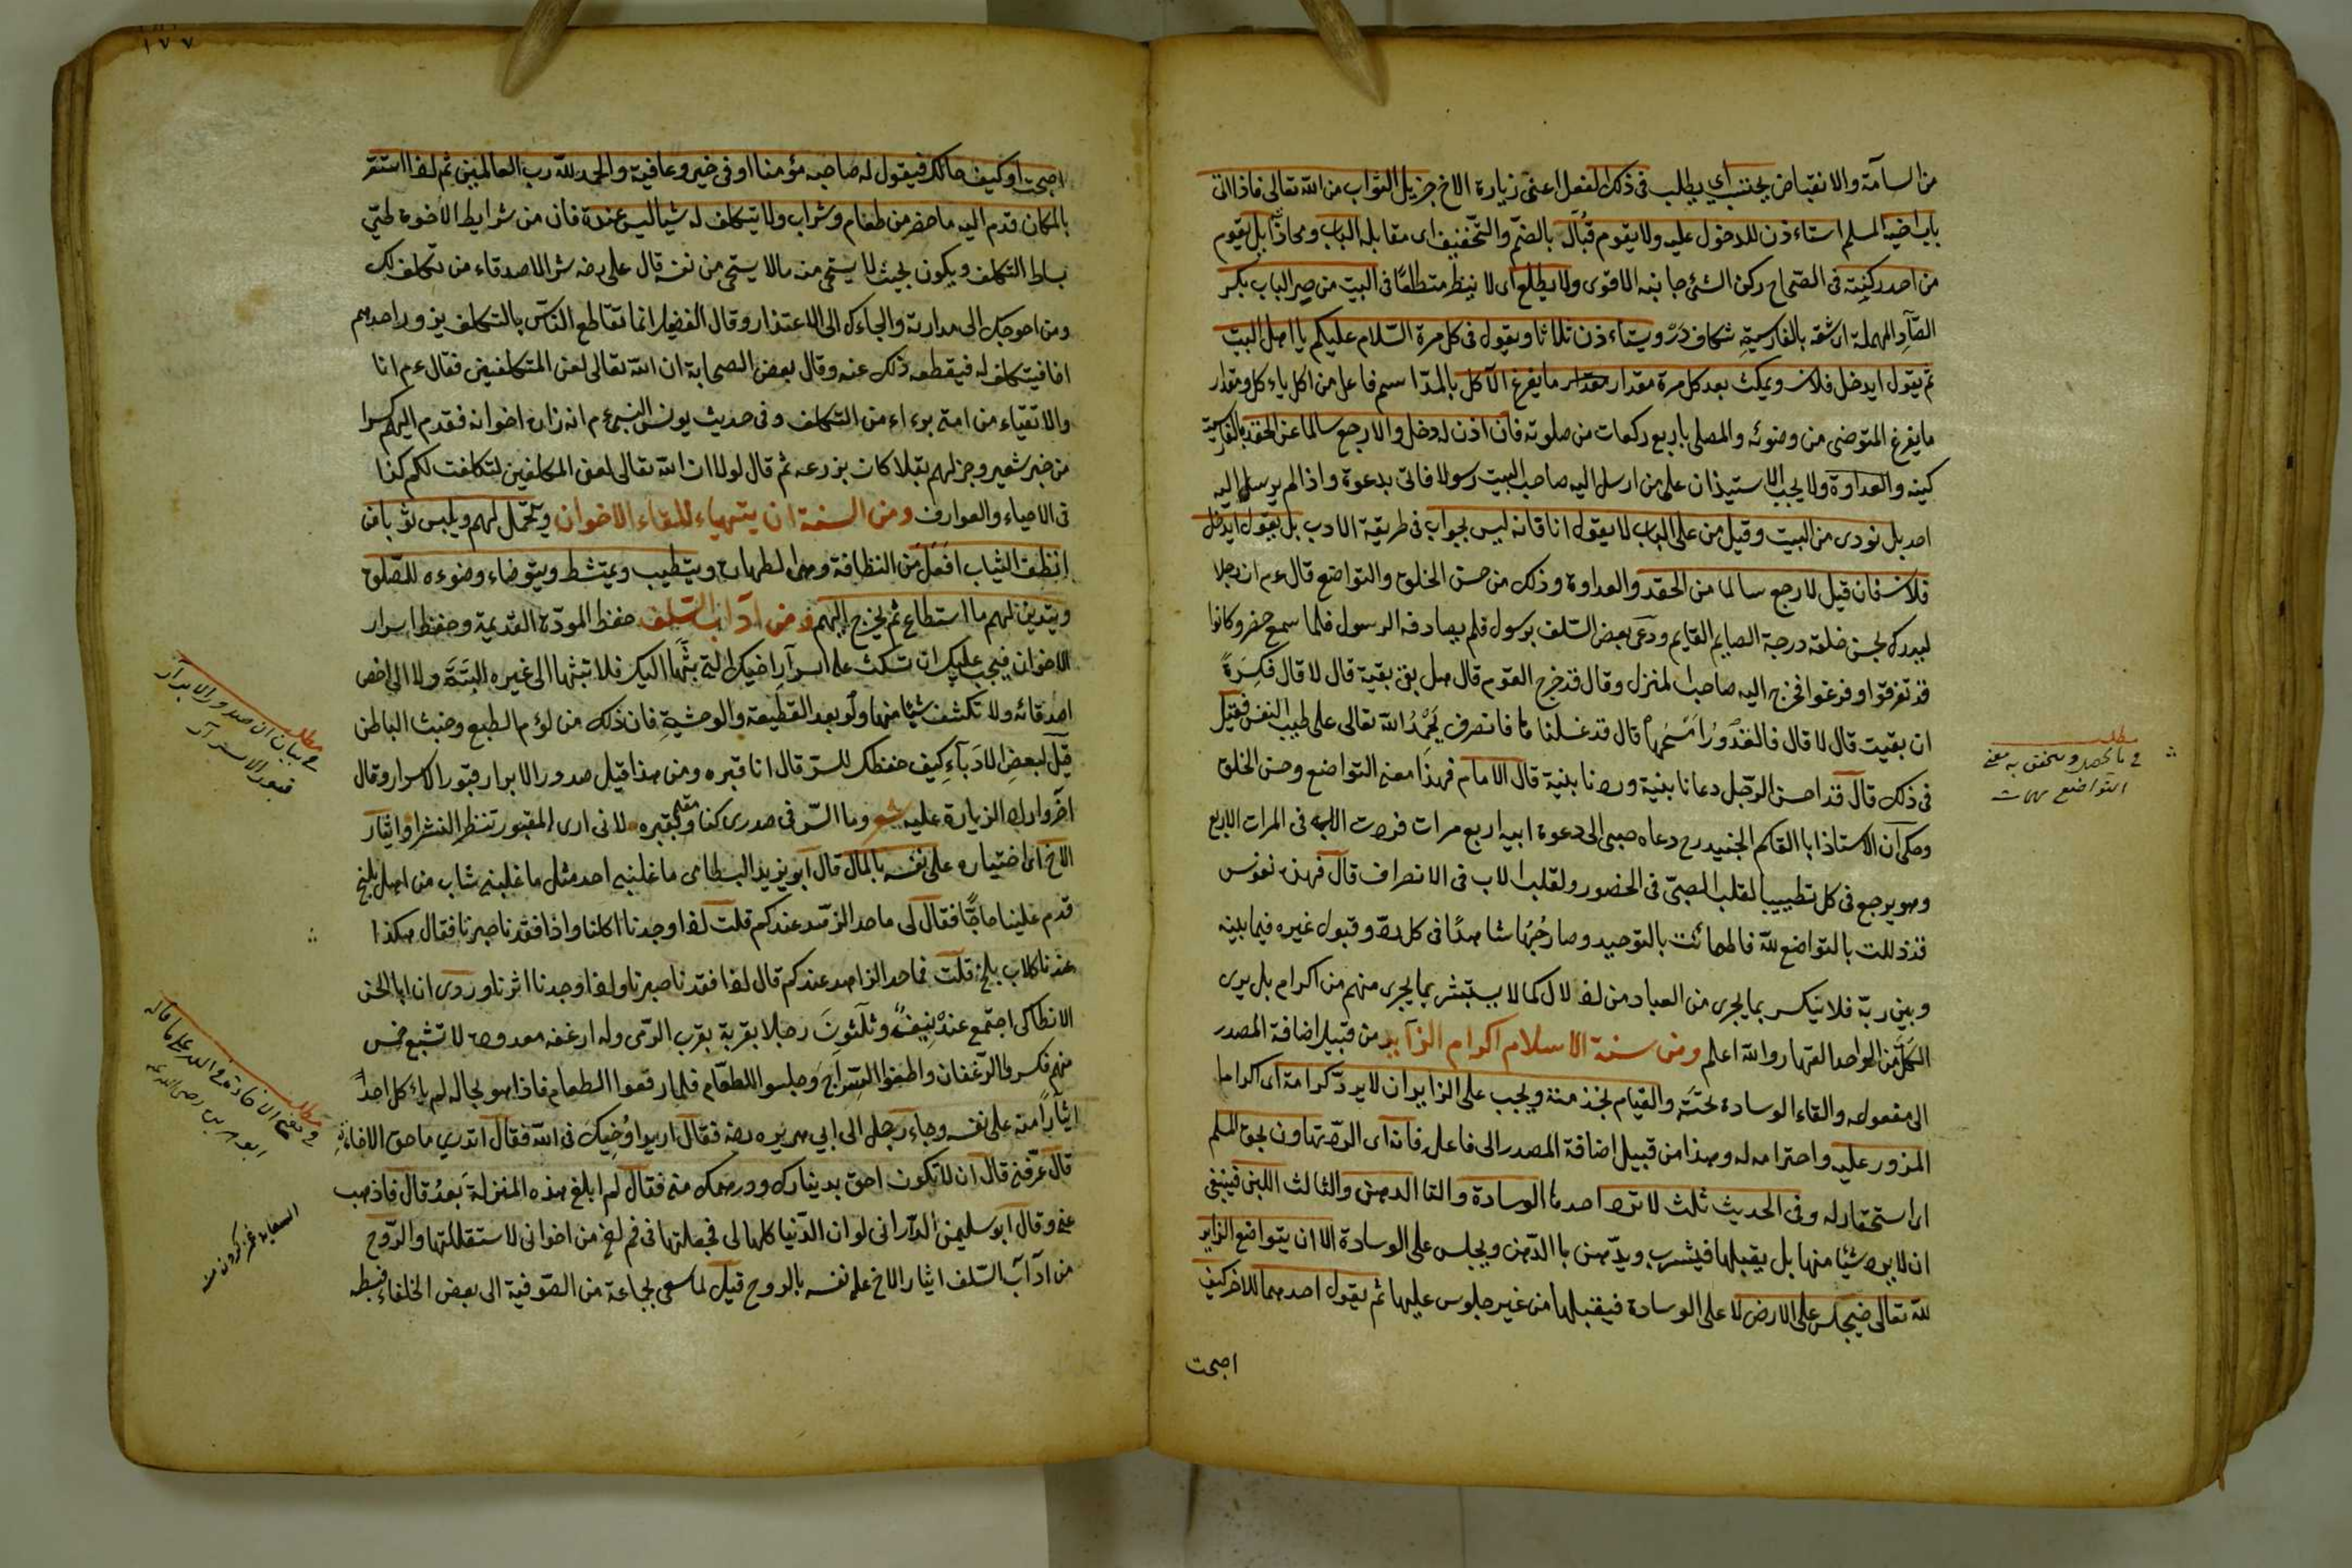 من السآمة والانقباض يجتنب اي يطلب فى ذلك الفعل اعنى زيارة الاخ جزيل الثواب من الله تعالى فاذا اتى
باب اخيه المسلم استاءذن للدخول عليه ولا يقوم قُبالَه بالضمّ والتخفيف اى مقابلة الباب ومحاذاته بل يقوم
من احد ركنيه فى الصّحاح ركن الشئ جانبه الاقوى ولا يطلع اى لا ينظر متطلعًا فى البيت من صير الباب بكسر
الصّآد المهملة اى شقه بالفارسية شكاف دَرْ ويستاءذن ثلاثا ويقول فى كل مرة السّلام عليكم يا اهل البيت
ثم يقول ايدخل فلان ويمكث بعد كل مرة مقدار مقدار ما يفرغ الآكل بالمدّ اسم فاعل من اكل ياءكل ومقدار
ما يفرغ المتوضى من وضوئه والمصلى باربع ركعات من صلوته فان اذن له دخل والا رجع سالما عن الحقد بالفارسية
كينه والعداوة ولا يجب الاستيذان على من ارسل اليه صاحب البيت رسولا فاتى بدعوة واذا لم يرسل اليه
احد بل نودى من البيت وقيل من على الباب لا يقول انا فانه ليس بجواب فى طريقة الادب بل يقول ايدخل
فلان فان قيل لا رجع سالما من الحقد والعداوة وذلك من حسن الخلق والتواضع قال ءم ان رجلا
ليدرك بحسن خلقه درجة الصايم القايم ودَعَى بعض السّلف برسول فلم يصادفه الرسول فلما سمع حضر وكانوا
قد تفرقوا وفرغوا فخرج اليه صاحب المنزل وقال قد خرج القوم قال هل بقى بقية قال لا قال فكِسَرةً
ان بقيت قال لا قال فالقُدُوْرُ اَمْسَحُها قال قد غسلناها فانصرف يَحْمَدُ الله تعالى على طيب النفس فقيل
فى ذلك قال قد احسن الرّجل دعانا بنية وردنا بنية قال الامام فهذا معنى التواضع وحسن الخلق
وحكى ان الاستاذ ابا القاسم الجنيد رح دعاه صبى الى دعوة ابيه اربع مرات فردت الاب فى المرات الاربع
وهو يرجع فى كل تطييبا لقلب الصبىّ فى الحضور ولقلب الاب فى الانصراف قال فهذه نفوس
قد ذللت بالتواضع لله فاطماءنّت بالتوحيد وصار حُبُّها شاهدًا فى كل ردّ وقبول غيره فيما بينه
وبين ربّه فلا تنكسر بما يجرى من العباد من اذلال كما لا يستبشر بما يجرى منهم من اكرام بل يرى
الكلّ من الواحد القهار والله اعلم ومن سنة الاسلام اكرام الزآير من قبيل اضافة المصدر
الى مفعوله والقاء الوسادة تحتَه والقيام بخدمته ويجب على الزاير ان لا يردّ كرامة اى اكراما
المزور عليه واحترامه له وهذا من قبيل اضافة المصدر الى فاعله فانه اى الردّ تهاون بحق المسلم
اى استحقار له وفى الحديث ثلث لا ترد احدها الوسادة والثانى الدهن والثالث اللبن فينبغى
ان لا يرد شيئا منها بل يقبلها فيشرب ويدّهن باالدّهن ويجلس على الوسادة الا ان يتواضع الزاير
لله تعالى فيجلس على الارض لا على الوسادة فيقبلها من غير جلوس عليها ثم يقول احدهما للاخر كيف
اصبحت
مطلب
فى ما يحصل ويتحقق به معنى
التواضع
١٧٧
اصبحت او كيف حالك فيقول له صاحبه مؤمنا او فى خير وعافية والحمد لله رب العالمين ثم اذا استقر
بالمكان قدم اليه ما حضر من طعام وشراب ولا يتكلف له شيا ليس عنده فان من شرايط الاخوة طىّ
بساط التكلف ويكون بحيث لا يستحى منه ما لا يستحى من نفسه قال على رضه شر الاصدقاء من تكلف لك
ومن احوجك الى مداراته والجاءك الى الاعتذار وقال الفضيل انما تقاطع الناس بالتكلف يزور احدهم
اخاه فيتكلف له فيقطعه ذلك عنه وقال بعض الصحابة ان الله تعالى لعن المتكلفين فقال ءم انا
والاتقياء من امتى برءاء من التكلف وفى حديث يونس النبى ءم انه زاره اخوانه فقدم اليهم كسرا
من خبز شعير وجز لهم بقلا كان يزرعه ثم قال لولا ان الله تعالى لعن المتكلفين لتكلفت لكم كذا
فى الاحياء والعوارف ومن السنة ان يتهياء للقاء الاخوان ويتجمّل لهم ويلبس ثوبا من
انظف الثياب افعل من النظافة وهى الطهارة ويتطيب ويمتشط ويتوضاء وضوءه للصّلوة
ويتزين لهم ما استطاع ثم يخرج اليهم ومن آداب السّلف حفظ المودّة القديمة وحفظ اسرار
الاخوان فيجب عليك ان تسكت على اسرآر اخيك التى بثّها اليك فلا تبثها الى غيره البتة ولا الى اخص
اصدقائه ولا تكشف شيئا منها ولو بعد القطيعة والوحشة فان ذلك من لؤم الطبع وخبث الباطن
قيل لبعض الادباء كيف حفظك للسرّ قال انا قبره ومن هذا قيل صدور الابرار قبور الاسرار وقال
آخر واراد الزيارة عليه شعر وما السّر فى صدرى كثاو مقيم بقبره لانى ارى المقبور تنتظر النشرا وايثار
الاخ اى اختياره على نفسه بالمال قال ابو يزيد البسطامى ما غلبنى احد مثل ما غلبنى شاب من اهل بلخ
قدم علينا حاجًّا فقال لى ما حد الزهد عندكم قلت اذا وجدنا اكلنا واذا فقدنا صبرنا فقال هكذا
عندنا كلاب بلخ قلت فما حد الزاهد عندكم قال اذا فقدنا صبرنا واذا وجدنا اثرنا وروى ان ابا الحسن
الانطاكى اجتمع عنده نيّف وثلثون رجلا بقرية بقرب الرّى وله ارغفة معدودة لا تشبع خمس
منهم فكسروا الرّغفان واطفؤا السّراج وجلسوا للطعام فلما رفعوا الطعام فاذا هو بحاله لم ياءكل احدٌ
ايثارًا منه على نفسه وجاء رجل الى ابى هريره رضه فقال اريد اُوخيك فى الله فقال اتدرى ما حق الاخاء
قال عرّفنى قال ان لا تكون احق بدينارك ودرهمك منى فقال لم ابلغ هذه المنزلة بَعدُ قال فاذهب
عنى وقال ابو سليمن الدّارانى لو ان الدّنيا كلها لى فجعلتها فى فم اخ من اخوانى لاستقللتها والرّوح
من ادآب السّلف ايثار الاخ على نفسه بالروح قيل لما سعى بجاعة من الصّوفية الى بعض الخلفاء فبطه
مطلب
فى بيان ان صدور الابرآر
قبور الاسرآر
مطلب